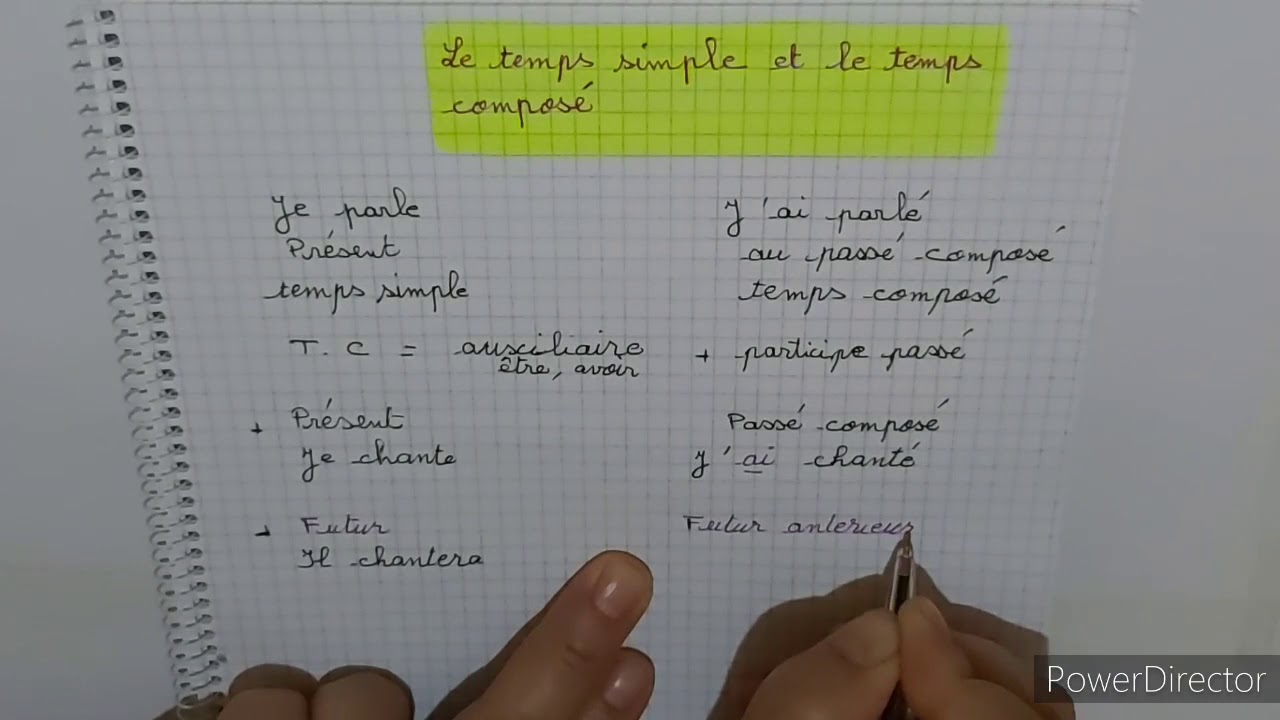 Le temps simple et le temps
composé
Je parle
Présent
temps simple
J'ai parlé
au passé composé
temps composé
T.C = auxiliaire + participe passé
être, avoir
+ Présent
Je chante
Passé composé
J'ai chanté
+ Futur
Il chantera
Futur anterieur
PowerDirector